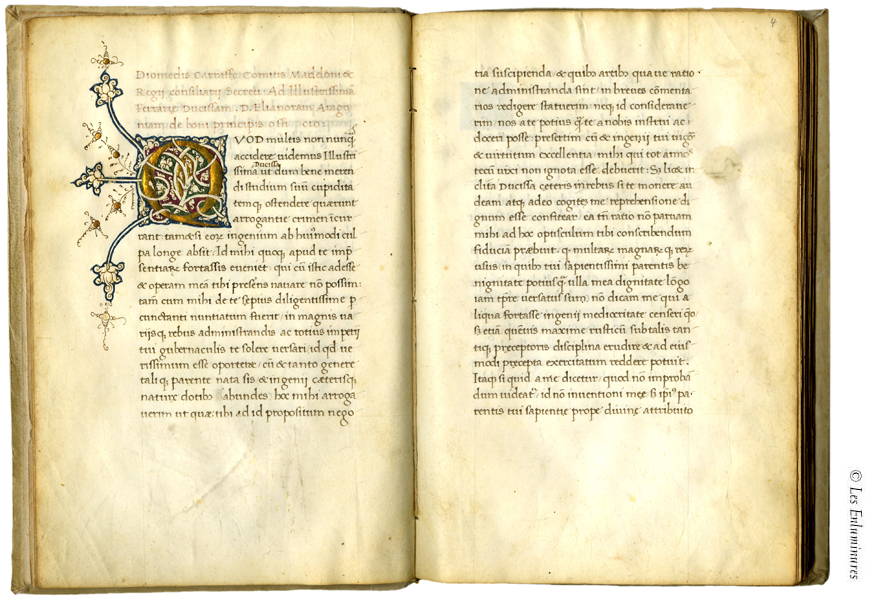 Diomedis Carraffe Comitis Madaloni &
Regii consiliarii Secreti Ad Illustrissimā
Ferrarie Ducissam D. Elianoram Arago
niam de boni principis
QVOD multis non nunq̄
accidere videmus Illustri
ssima Ducissa ut dum bene meren
di studium suū cupidita
temq; ostendere quærunt
arrogantie crimen īcur
rant: tametsi eorz ingenium ab huīmodi cul
pa longe absit. Id mihi quoq; apud te imp̄
sentiarz fortassis eveniet: qui cū istic adesse
& operam meā tibi presens navare nō possim:
tam cum mihi de te sepius diligentissime p
cunctanti nuntiatum fuerit in magnis va
riisq; rebus administrandis ac totius imperii
tui gubernaculis te solere versari id qd ve
rissimum esse oportere: cū & tanto genere
taliq; parente nata sis & ingenii cæterisq;
nature dotibz abundes: hoc mihi arroga
verim ut quæ tibi ad id propositum nego
4
tia suscipienda & quibz artibz quave ratio
ne administranda sint: in breves cōmenta
rios redigere statuerim neq; id considerave
rim nos a te potius q̄ te a nobis instrui ac
doceri posse presertim cū & ingenii tui vigor
& virtutum excellentia mihi qui tot annos
tecū vixi non ignota esse debuerit: Sz licz in
clita Ducissa ceteris in rebus si te monere au
deam atq; adeo cogites me reprehensione di
gnum esse confitear. ea tn̄ ratio nō parvam
mihi ad hoc opusculum tibi conscribendum
fiduciā præbuit. q multarz magnarq; rerz
usus in quibz tui sapientissimi parentis be
nignitate potiusq̄ ulla mea dignitate lōgo
iam tpre versatus sum: nō dicam me qui a
liqua fortasse ingenii mediocritate censeri q̄o
Sz etiā quēvis maxime rusticū sub talis tan
tiq; preceptoris disciplina erudire & ad eius
modi precepta exercitatum reddere potuit.
Itaq; si quid a me dicetur quod nō improbā
dum videat: id nō inventioni meę sz ipi' pa
rentis tui sapientie prope divine attribuito
© Les Enluminures